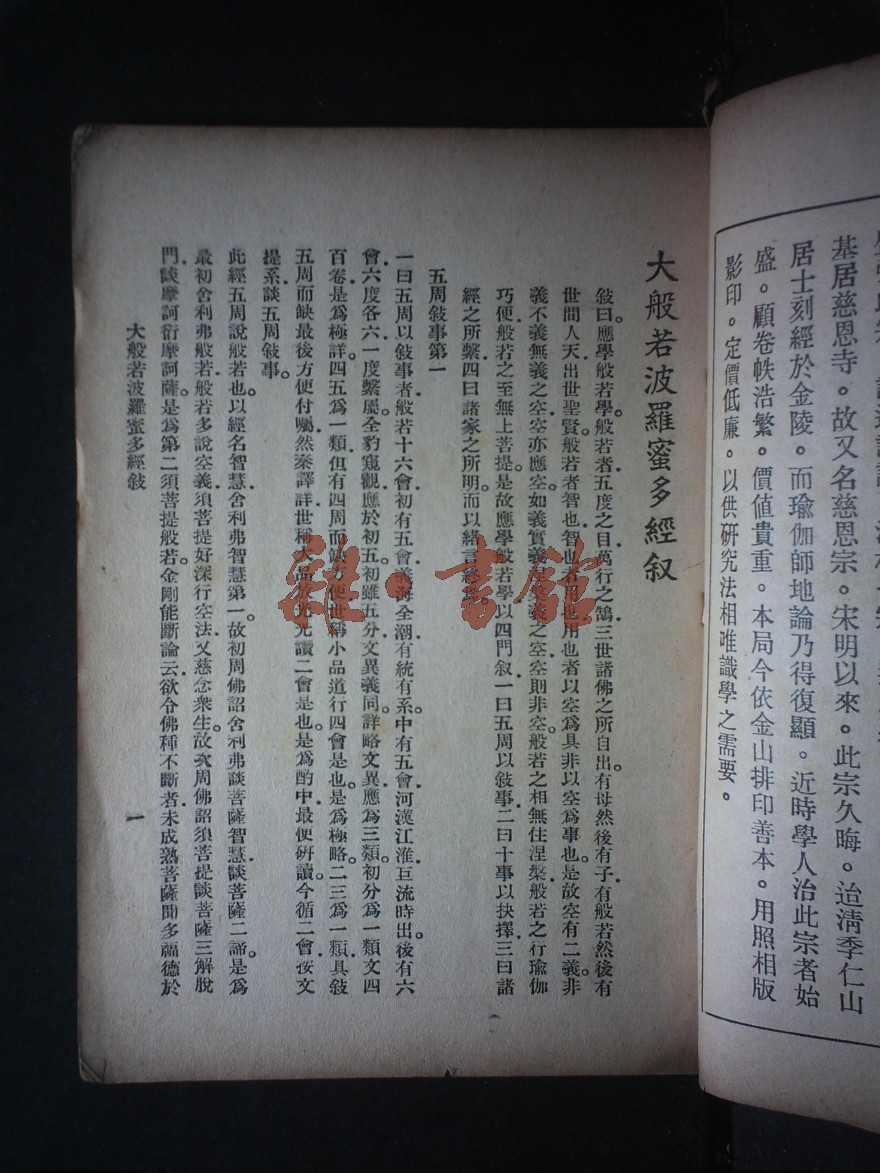 基居慈恩寺。故又名慈恩宗。宋明以來。此宗久晦。迨清季仁山
居士刻經於金陵。而瑜伽師地論乃得復顯。近時學人治此宗者始
盛。顧卷帙浩繁。價值貴重。本局今依金山排印善本。用照相版
影印。定價低廉。以供研究法相唯識學之需要。
大般若波羅蜜多經叙
敍曰應學般若學般若者五度之目萬行之鵠三世諸佛之所自出有母然後有子有般若然後有
世間人天出世聖賢般若者智也智也者用也用也者以空爲具非以空爲事也是故空有二義非
義不義無義之空空亦應空如義實義性義之空空則非空般若之相無住涅槃般若之行瑜伽
巧便般若之至無上菩提是故應學般若學以四門叙一曰五周以敍事二曰十事以抉擇三曰諸
經之所繫四曰諸家之所明而以緒言終焉
五周敍事第一
一曰五周以敍事者般若十六會初有五會義海全潮有統有系中有五會河漢江淮巨流時出後有六
會六度各六一度繫屬全豹窺觀應於初五初雖五分文異義同詳略文異應爲三類初分爲一類文四
百卷是爲極詳四五爲一類但有四周而缺方便世稱小品道行四會是也是爲極略二三爲一類具敍
五周而缺最後方便付囑然秦譯詳世稱大品放光光讚二會是也是爲酌中最便研讀今循二會按文
提系談五周敍事
此經五周說般若也以經名智慧舍利弗智慧第一故初周佛詔舍利弗談菩薩智慧談菩薩二諦是爲
最初舍利弗般若般若多說空義須菩提好深行空法又慈念衆生故次周佛詔須菩提談菩薩三解脫
門談摩訶衍摩訶薩是爲第二須菩提般若金剛能斷論云欲令佛種不斷者未成熟菩薩聞多福德於
大般若波羅蜜多經敍
一
雜·書館